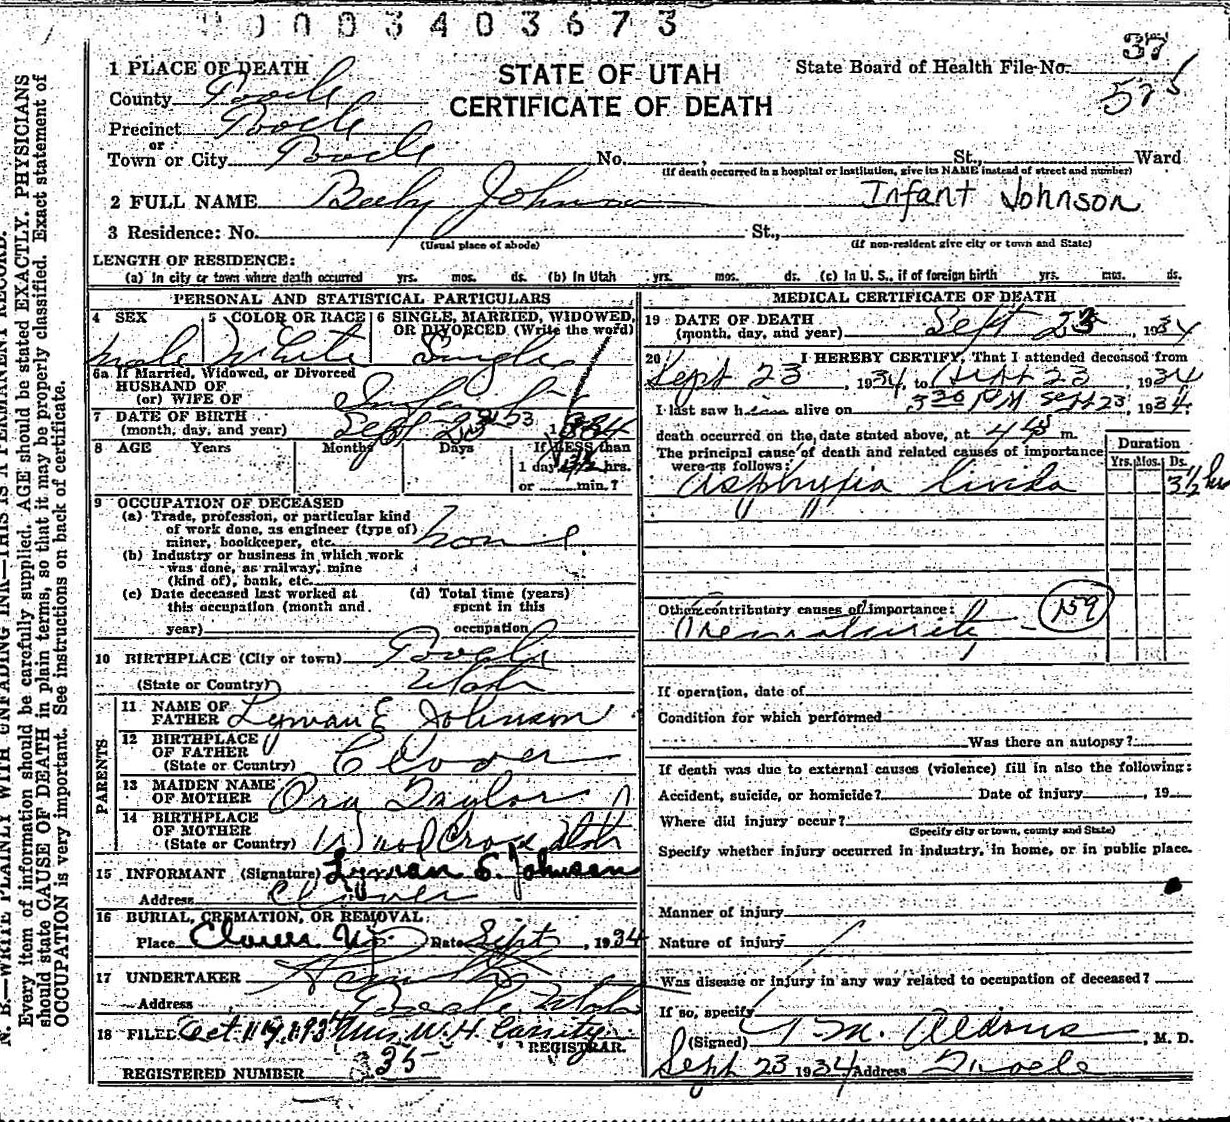 0003403673
37
575
1 PLACE OF DEATH
STATE OF UTAH
CERTIFICATE OF DEATH
State Board of Health File No.
County Tooele
Precinct Tooele
or
Town or City Tooele No. , St., Ward
(If death occurred in a hospital or institution, give its NAME instead of street and number)
2 FULL NAME Baby Johnson Infant Johnson
3 Residence: No. St.,
(Usual place of abode) (If non-resident give city or town and State)
LENGTH OF RESIDENCE:
(a) In city or town where death occurred yrs. mos. ds. (b) In Utah yrs. mos. ds. (c) In U. S., if of foreign birth yrs. mos. ds.
PERSONAL AND STATISTICAL PARTICULARS
4 SEX 5 COLOR OR RACE 6 SINGLE, MARRIED, WIDOWED,
OR DIVORCED (Write the word)
Male White Single
6a If Married, Widowed, or Divorced
HUSBAND OF
(or) WIFE OF Infant
7 DATE OF BIRTH
(month, day, and year) Sept 23 1934
8 AGE Years Months Days If LESS than
1 day 3 1/2 hrs.
or min.?
9 OCCUPATION OF DECEASED
(a) Trade, profession, or particular kind
of work done, as engineer (type of)
miner, bookkeeper, etc. none
(b) Industry or business in which work
was done, as railway, mine
(kind of), bank, etc.
(c) Date deceased last worked at
this occupation (month and
year)
(d) Total time (years)
spent in this
occupation
10 BIRTHPLACE (City or town) Tooele
(State or Country) Utah
PARENTS
11 NAME OF
FATHER Lyman E Johnson
12 BIRTHPLACE
OF FATHER
(State or Country) Clover
13 MAIDEN NAME
OF MOTHER Ora Taylor
14 BIRTHPLACE
OF MOTHER
(State or Country) Wood Cross Utah
15 INFORMANT (Signature) Lyman E. Johnson
Address Clover
16 BURIAL, CREMATION, OR REMOVAL
Place Clover Ut. Date Sept , 1934
17 UNDERTAKER
Address Tooele Utah
18 FILED Oct 11 Mrs. W. H. Cassity
REGISTRAR.
REGISTERED NUMBER 35
MEDICAL CERTIFICATE OF DEATH
19 DATE OF DEATH
(month, day, and year) Sept 23 , 1934
20 I HEREBY CERTIFY, That I attended deceased from
Sept 23 , 1934, to Sept 23 , 1934
I last saw him alive on 3 30 PM Sept 23, 1934.
death occurred on the date stated above, at 4 45 m.
The principal cause of death and related causes of importance
were as follows:
Duration
Yrs. Mos. Ds.
Asphyxia livida 3 1/2 hrs
Other contributory causes of importance:
Prematurity 159
If operation, date of
Condition for which performed
Was there an autopsy?
If death was due to external causes (violence) fill in also the following:
Accident, suicide, or homicide? Date of injury , 19
Where did injury occur?
(Specify city or town, county and State)
Specify whether injury occurred in industry, in home, or in public place.
Manner of injury
Nature of injury
Was disease or injury in any way related to occupation of deceased?
If so, specify
(Signed) M. Aldous , M. D.
Sept 23 1934 Address Tooele
N. B.—WRITE PLAINLY WITH UNFADING INK—THIS IS A PERMANENT RECORD.
Every item of information should be carefully supplied. AGE should be stated EXACTLY. PHYSICIANS
should state CAUSE OF DEATH in plain terms, so that it may be properly classified. Exact statement of
OCCUPATION is very important. See instructions on back of certificate.